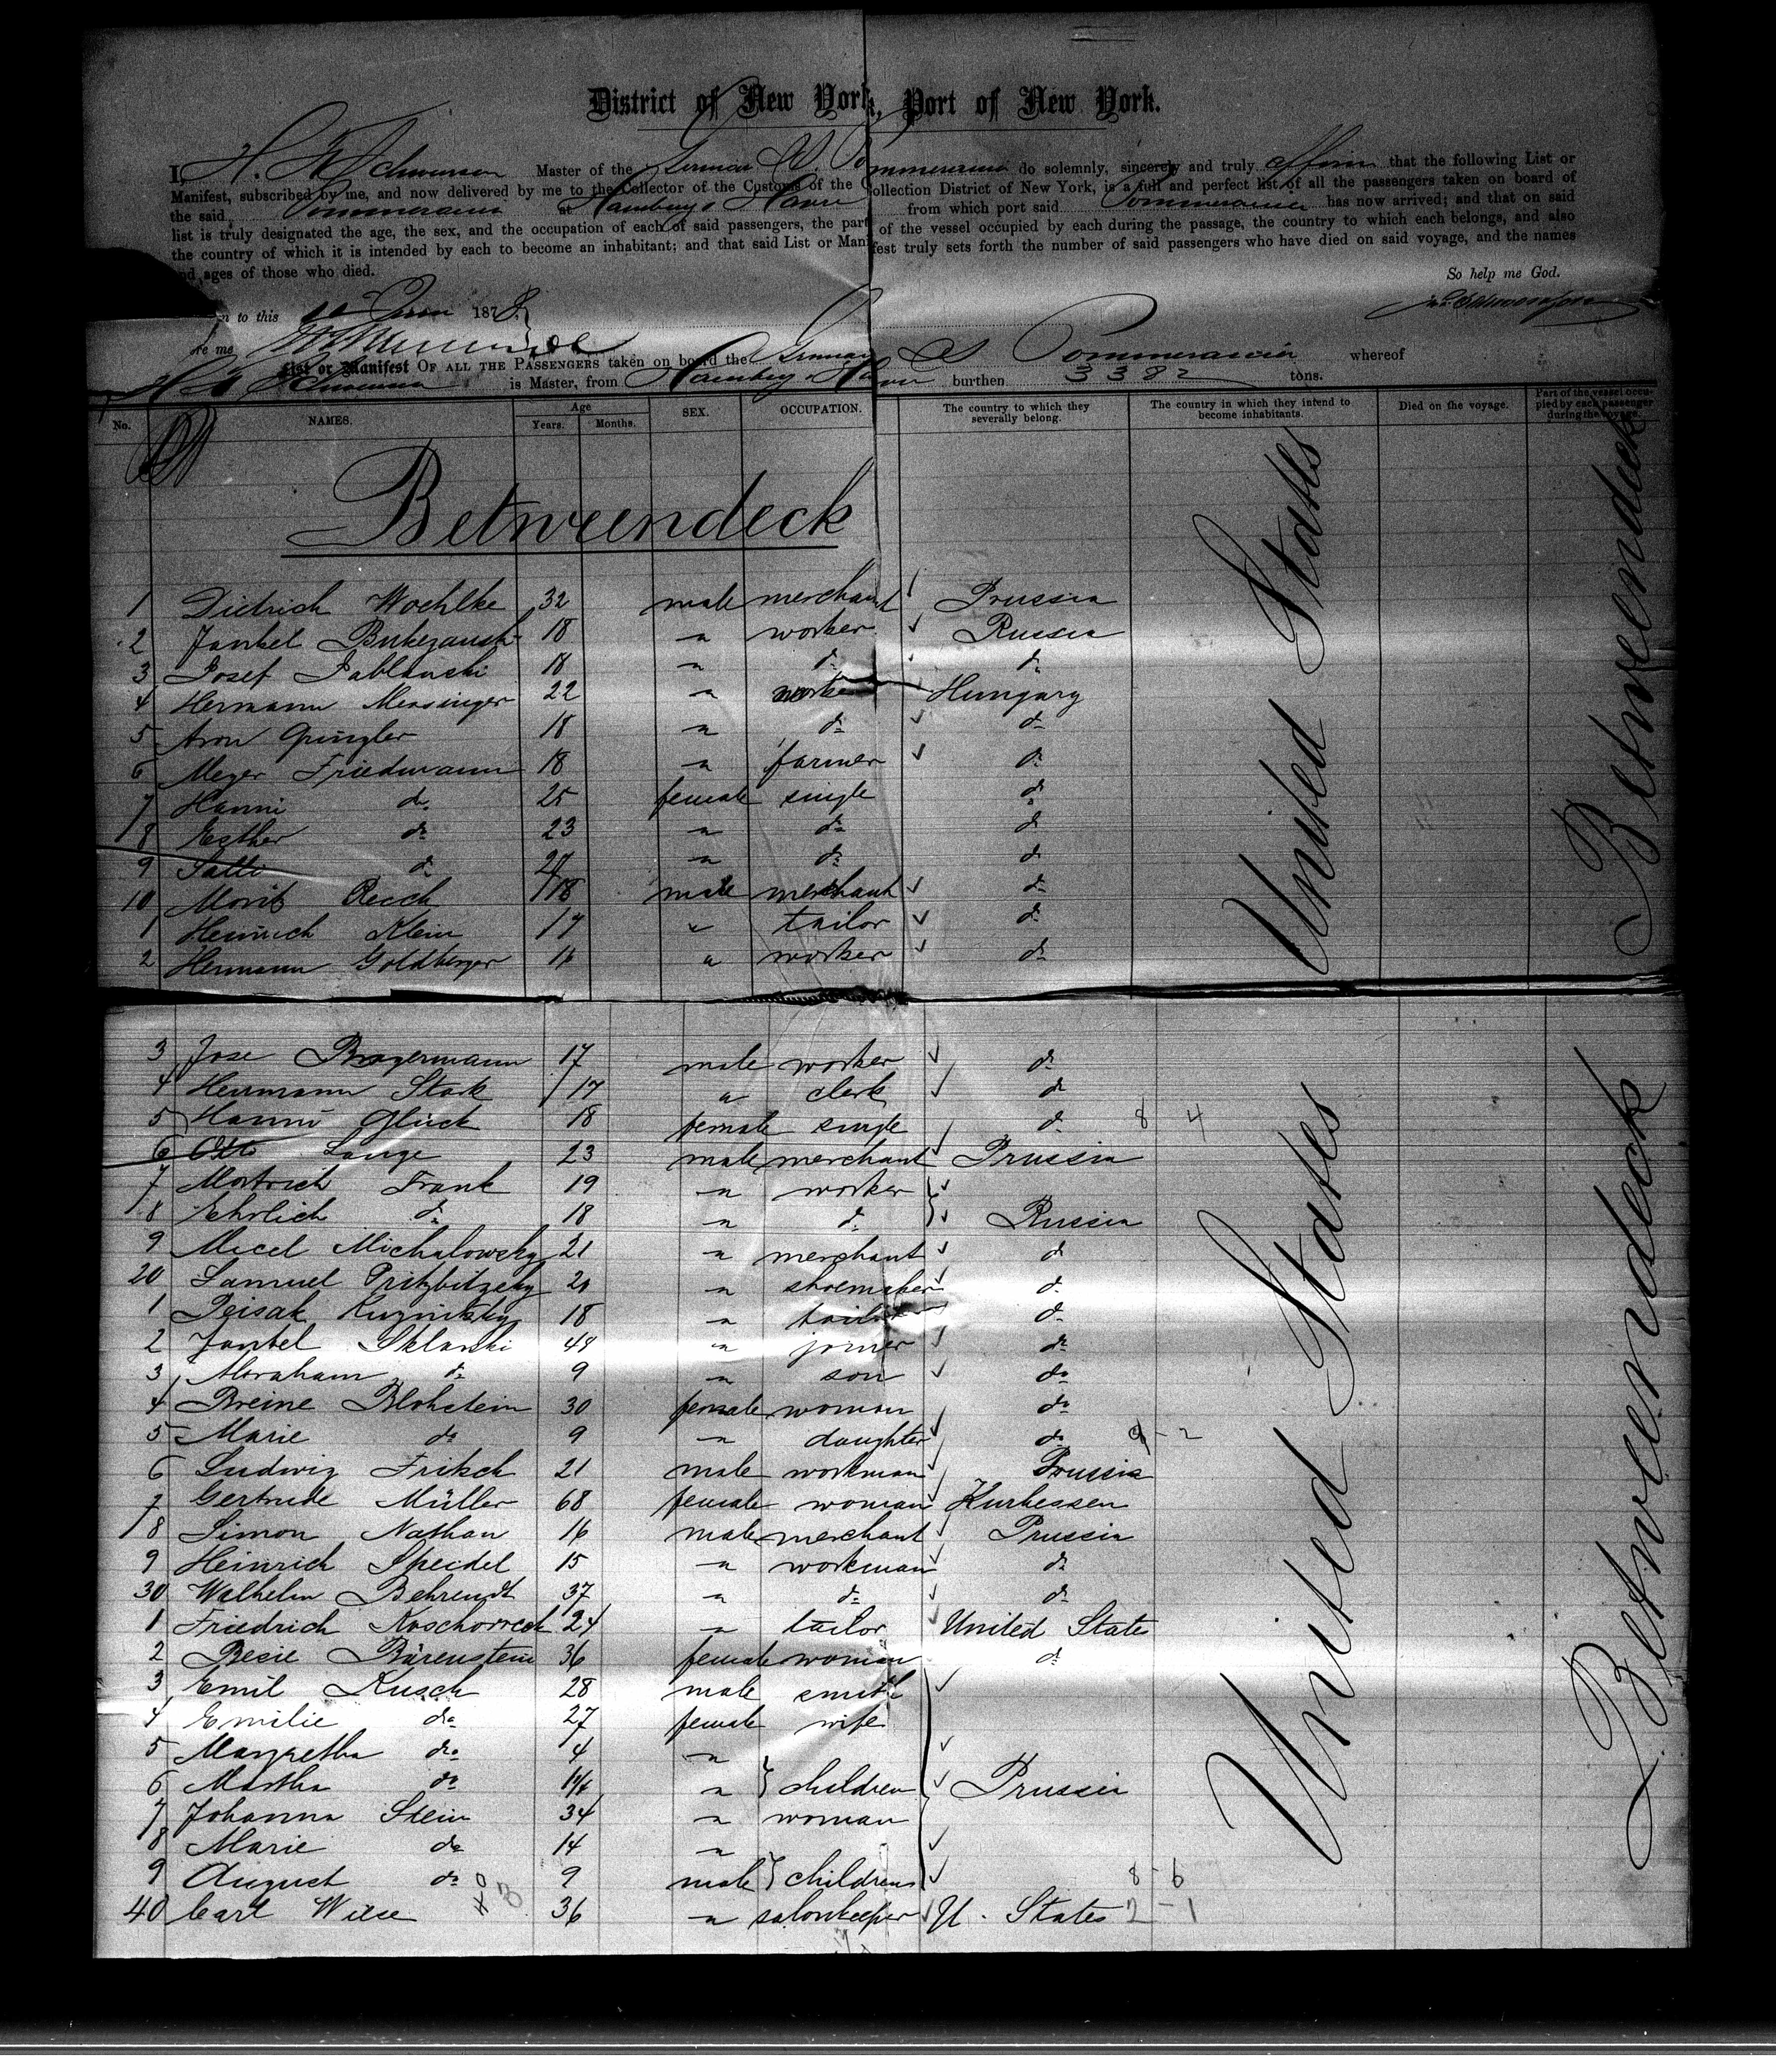 District of New York, Port of New York.
I, H. Master of the German Pommerania do solemnly, sincerely and truly affirm that the following List or
Manifest, subscribed by me, and now delivered by me to the Collector of the Customs of the Collection District of New York, is a full and perfect list of all the passengers taken on board of
the said Pommerania at Hamburg & Havre from which port said Pommerania has now arrived; and that on said
list is truly designated the age, the sex, and the occupation of each of said passengers, the part of the vessel occupied by each during the passage, the country to which each belongs, and also
the country of which it is intended by each to become an inhabitant; and that said List or Manifest truly sets forth the number of said passengers who have died on said voyage, and the names
and ages of those who died.
So help me God.
to this 1878
re me
List or Manifest OF ALL THE PASSENGERS taken on board the German Pommerania whereof
is Master, from Hamburg & Havre burthen 3382 tons.
No. NAMES. Age Years. Months. SEX. OCCUPATION. The country to which they severally belong. The country in which they intend to become inhabitants. Died on the voyage. Part of the vessel occupied by each passenger during the voyage.
Betweendeck
United States
Betweendeck
1 Dietrich Woehlke 32 male merchant Prussia
2 Jankel 18 " worker Russia
3 Josef Jablanski 18 " do do
4 Hermann Mensinger 22 " worker Hungary
5 Aron 18 " do do
6 Meyer Friedmann 18 " farmer do
7 Hanni do 25 female single do
8 Esther do 23 " do do
9 Salli do 27 " do do
10 Morit 18 male merchant do
1 Heinrich Klein 17 " tailor do
2 Hermann Goldberger 16 " worker do
United States
Betweendeck
3 Jose 17 male worker do
4 Herrmann Stark 17 " clerk do
5 Hanni Glück 18 female single do 8 4
6 Otto Lange 23 male merchant Prussia
7 Frank 19 " worker
8 Ehrlich do 18 " do Russia
9 Micel Michalowsky 21 " merchant do
20 Samuel " shoemaker do
1 Peisak 18 " tailor do
2 Jankel Sklarski " joiner do
3 Abraham do 9 " son do
4 Breine Blohstein 30 female woman do
5 Marie do 9 " daughter do 9 - 2
6 Ludwig Fritsch 21 male workman Prussia
7 Gertrude Müller 68 female woman Kurhessen
8 Simon Nathan 16 male merchant Prussia
9 Heinrich Speidel 15 " workman do
30 Wilhelm Behrendt 37 " do do
1 Friedrich Koschorreck 24 " tailor United States
2 Besie Bärenstein 36 female woman do
3 Emil Kusch 28 male smith
4 Emilie do 27 female wife
5 Margretha do 4 "
6 Martha do " children Prussia
7 Johanna Stein 34 " woman
8 Marie do 14 "
9 August do 9 male children 8 - 6
40 Carl Wiese 36 " salonkeeper U. States 2 - 1